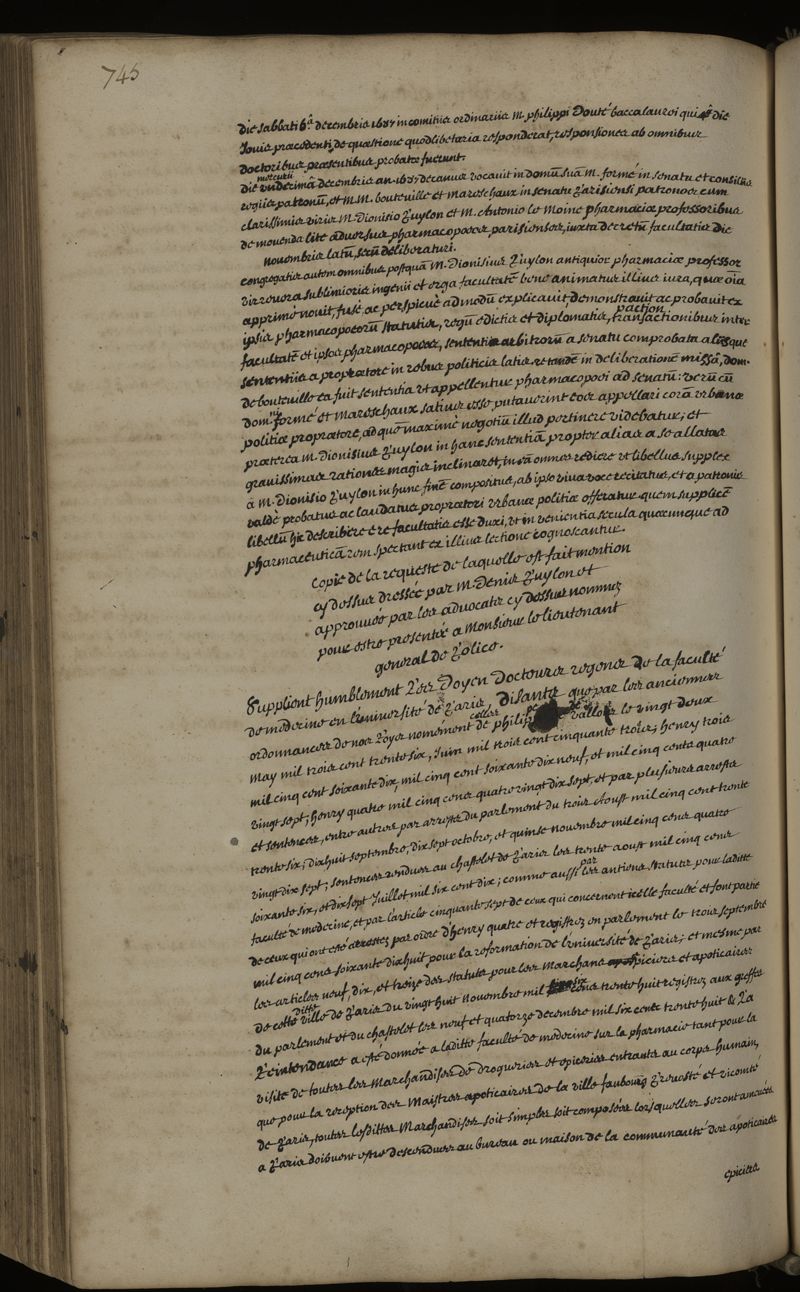 745
die sabbati 6â decembris 1687 in comitiis ordinariis M. philippi Douté baccalaurei qui die
Jouis praecedenti de quaestione quodlibetaria responderat, responsiones ab omnibus
doctoribus praesentibus probatae fuerunt.
die undecimâ decembris an. 1687 decanus vocauit in domū suā M. formé in senatu et consiliis
regiis patronū, et M.M. bouteuille et Mareschaux in senatu parisiensi patronos cum
clarissimis viris M. Dionisio Puylon et M. Antonio le Moine pharmaciae professoribus
de mouenda lite aduersus pharmacopoeos parisienses, iuxta decretū facultatis die
nouembris latū, secū deliberaturi.
congregatis autem omnibus postquā M. Dionisius Puylon antiquior pharmaciae professor
vir reuera sublimioris ingenii et erga facultatē bene animatus illius iura, quae oīa
apprimè nouit, fusè ac perspicuè admodū explicauit demonstrauit ac probauit ex
ipsis pharmacopoeorū statutis, regū edictis et diplomatis, pactionibus transactionibus inter
facultatē et ipsos pharmacopoeos, sententiis arbitrorū a senatu comprobatis aliisque
sententiis a propraetore in rebus politicis latis re tandē in deliberationē missâ, dom.
de bouteuille ea fuit sententia ut appellentur pharmacopoei ad senatū: verū cū
domni formé et Mareschaux satius esse putauerint eos appellari corā urbanae
politiae propraetore, ad quē maximè negotiū illud pertinere videbatur; et
praeterea M. Dionisius Puylon in hanc sententiā propter alias a se allatas
grauissimas rationes magis inclinaret, in eā omnes rediere ut libellus supplex
à M. Dionisio Puylon in hunc finē compositus, ab ipso viua voce recitatus, et a patronis
valdè probatus ac laudatus propraetori urbanae politiae offeratur quem supplicē
libellū hîc describere è re facultatis esse duxi, ut in venientia secula quaecunque ad
pharmaceuticā rem spectant ex illius lectione cognoscantur.
Copie de la requeste de laquelle est fait mention
cy dessus dressée par M. Denis Puylon et
approuuée par les aduocats cy dessus nommez
pour estre presentée a Monsieur le lieutenant
general de Police.
Supplient humblement Les Doyen Docteurs regens de la faculté
de medecine en l'uniuersité de Paris, Disants que par les anciennes
ordonnances de nos Roys nomément celles de philippe de vallois le vingt deux
May mil trois cent trente six, Juin mil trois cent cinquante trois; henry trois
mil cinq cent soixante dix, mil cinq cent soixante dix neuf, et mil cinq cents quatre
vingt sept; henry quatre mil cinq cens quatre vingt dix sept, et par plusieurs arrests
et sentences, entre autres par arrests du parlement du trois Aoust mil cinq cent trente
trente six; dix huit septembre, dix sept octobre, et quinse nouembre mil cinq cens quatre
vingt dix sept; sentences rendues au chastelet de Paris les trente aoust mil cinq cens
soixante six, et dix sept Juillet mil six cent dix; comme aussi par les antiens statuts pour laditte
faculté de medecine, et par l'article cinquante sept de ceux qui concernent icelle faculté et font partie
de ceux qui ont esté arrestez par ordre d'henry quatre et registrez en parlement le trois septembre
mil cinq cens soixante dix huit pour la reformation de l'uniuersité de Paris; et mesme par
les articles neuf, dix, et treize des statuts pour les Marchans espiciers et apoticaires
de cette ditte ville de Paris du vingt huit Nouembre mil six cens trente huit registrez aux greffes
du parlement et du chastelet les neuf et quatorze decembre mil six cens trente huit & La
L'eintendance a esté donnée a laditte faculté de medecine sur la pharmacie tant pour la
visite de toutes les Marchandises de drogueries et epiceries entrants au corps humain,
que pour la reception des Maistres apoticaires de la ville faubourg Preuosté et vicomté
de Paris, toutes lesdittes Marchandises soit simples soit composées lorsquelles seront amenées
a Paris doibuent estre descendues au bureau ou maison de la communauté des apoticaires
epiciers